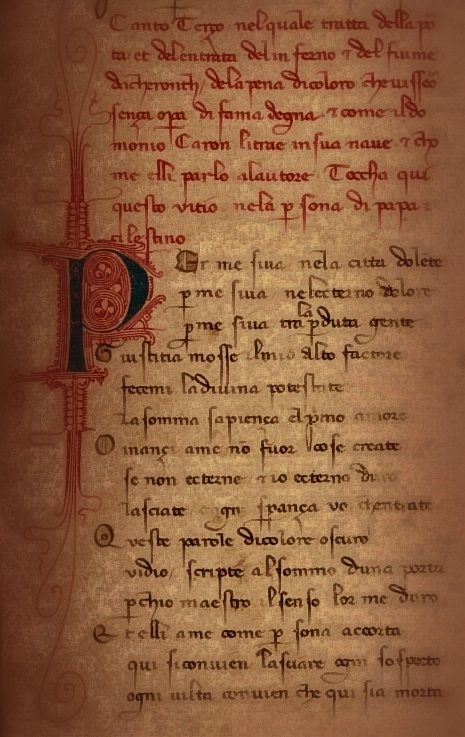 Canto Terço nel quale tratta della po
ta et del entrata del in ferno ⁊ del fiume
dicheronth, de la pena di coloro che visseo
sença opa di fama degna ⁊ come il do
monio Caron li trae in sua naue ⁊ cho
me elli parlo alautore Toccha qui
questo vitio ne la p sona di papa
cilestino
PEr me siua nela citta dolete
p me siua ne lecterno dolore
p me siua tra la pduta gente
Giustitia mosse il mio alto factore
fecemi la diuina potestate
La somma sapiença el pmo amore
Dinançi ame nō fuor cose create
se non ecterne ⁊ io ecterno duro
lasciate ogni sperança vo chentrate
Queste parole dicolore oscuro
vidio scripte al sommo duna porta
pchio maestro il senso lor me duro
Et elli ame come p sona accorta
qui si conuien lasciare ogni sospecto
ogni uilta conuien che qui sia morta